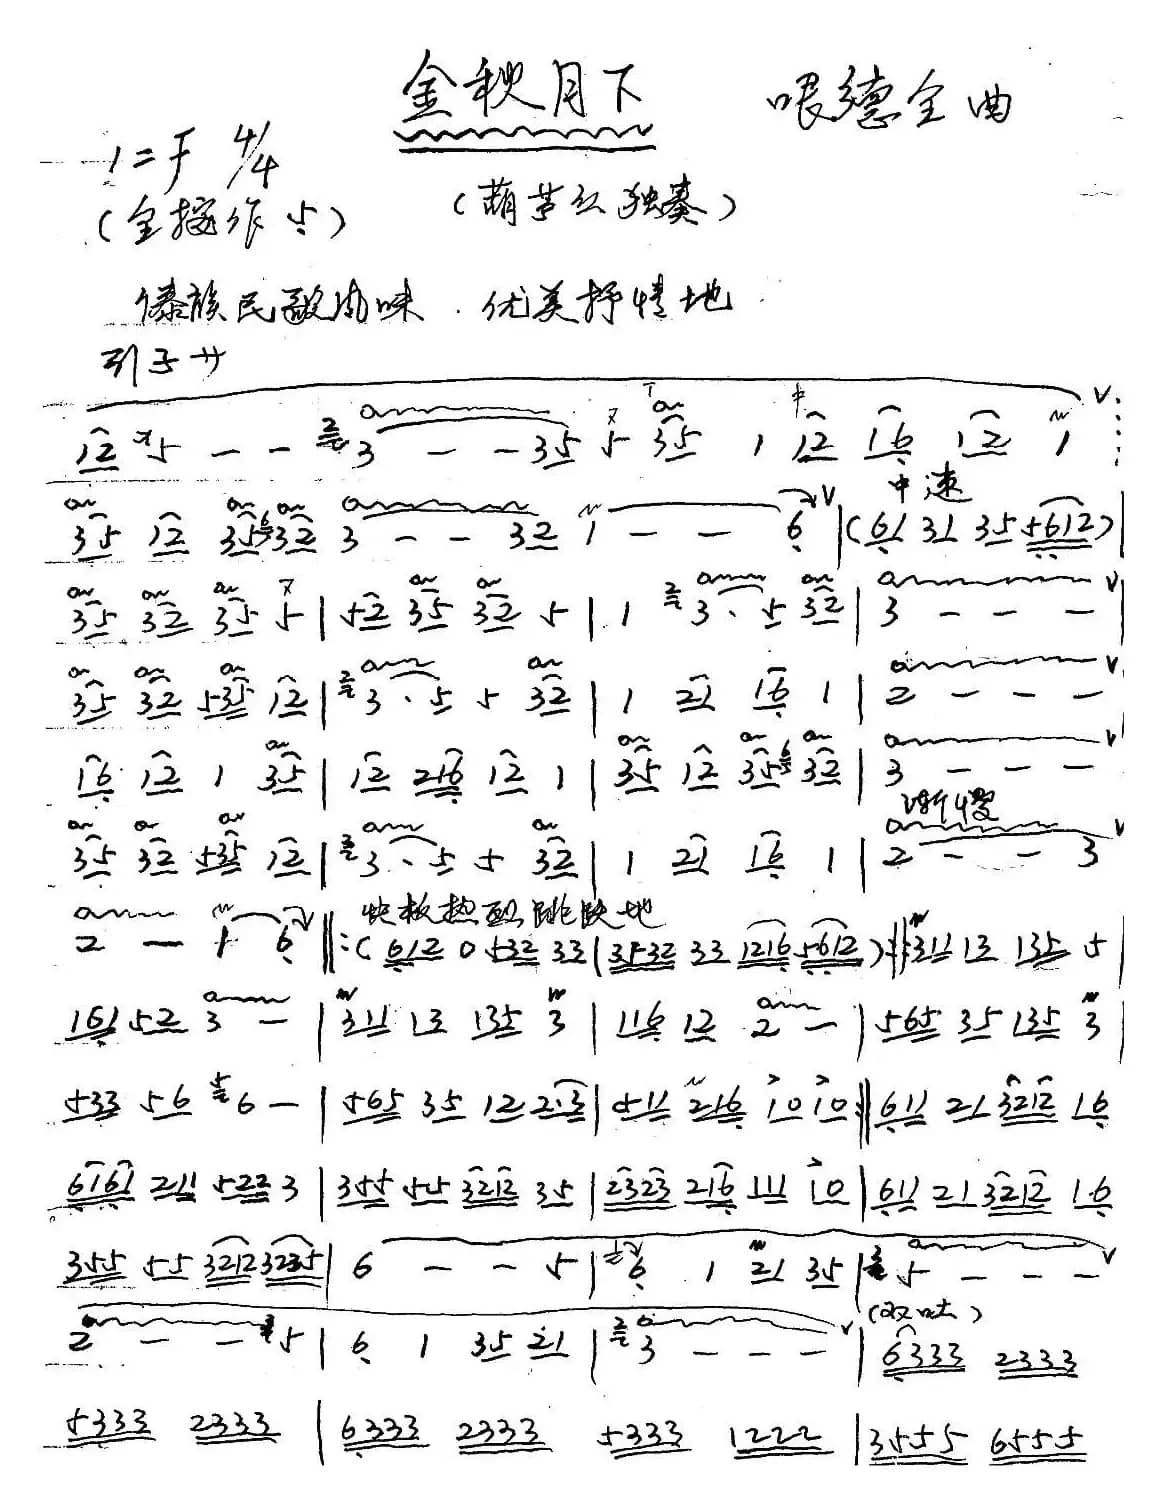 金秋月下
哏德全 曲
1=F 4/4
(全按作 5)
(葫芦丝独奏)
傣族民歌风味 . 优美抒情地
引子 サ
12 5 - - 3 - - 35 5 35 1 12 16 12 1
35 12 35 32 3 - - 32 1 - - 6 | 中速 (61 31 35 5612) |
35 32 35 5 | 52 35 32 5 | 1 3 · 5 32 | 3 - - - |
35 32 535 12 | 3 · 5 5 32 | 1 21 16 1 | 2 - - -
16 12 1 35 | 12 216 12 1 | 35 12 35 32 | 3 - - -
渐慢
35 32 535 12 | 3 · 5 5 32 | 1 21 16 1 | 2 - - 3
快板热烈跳跃地
2 - 1 6 ‖: (612 0 532 33 | 3532 33 1216 5612) :‖: 311 13 135 5 |
161 52 3 - | 311 13 135 3 | 116 12 2 - | 565 35 135 3 |
533 56 6 - | 565 35 12 2·3 | 511 216 10 10 :‖ 611 21 3212 16
6161 211 522 3 | 355 55 3212 35 | 2323 216 111 10 | 611 21 3212 16
355 55 3212 3235 | 6 - - 5 | 6 1 21 35 | 5 - - -
(双吐)
2 - - 5 | 6 1 35 21 | 3 - - - | 6333 2333
5333 2333 | 6333 2333 5333 1222 | 3555 6555